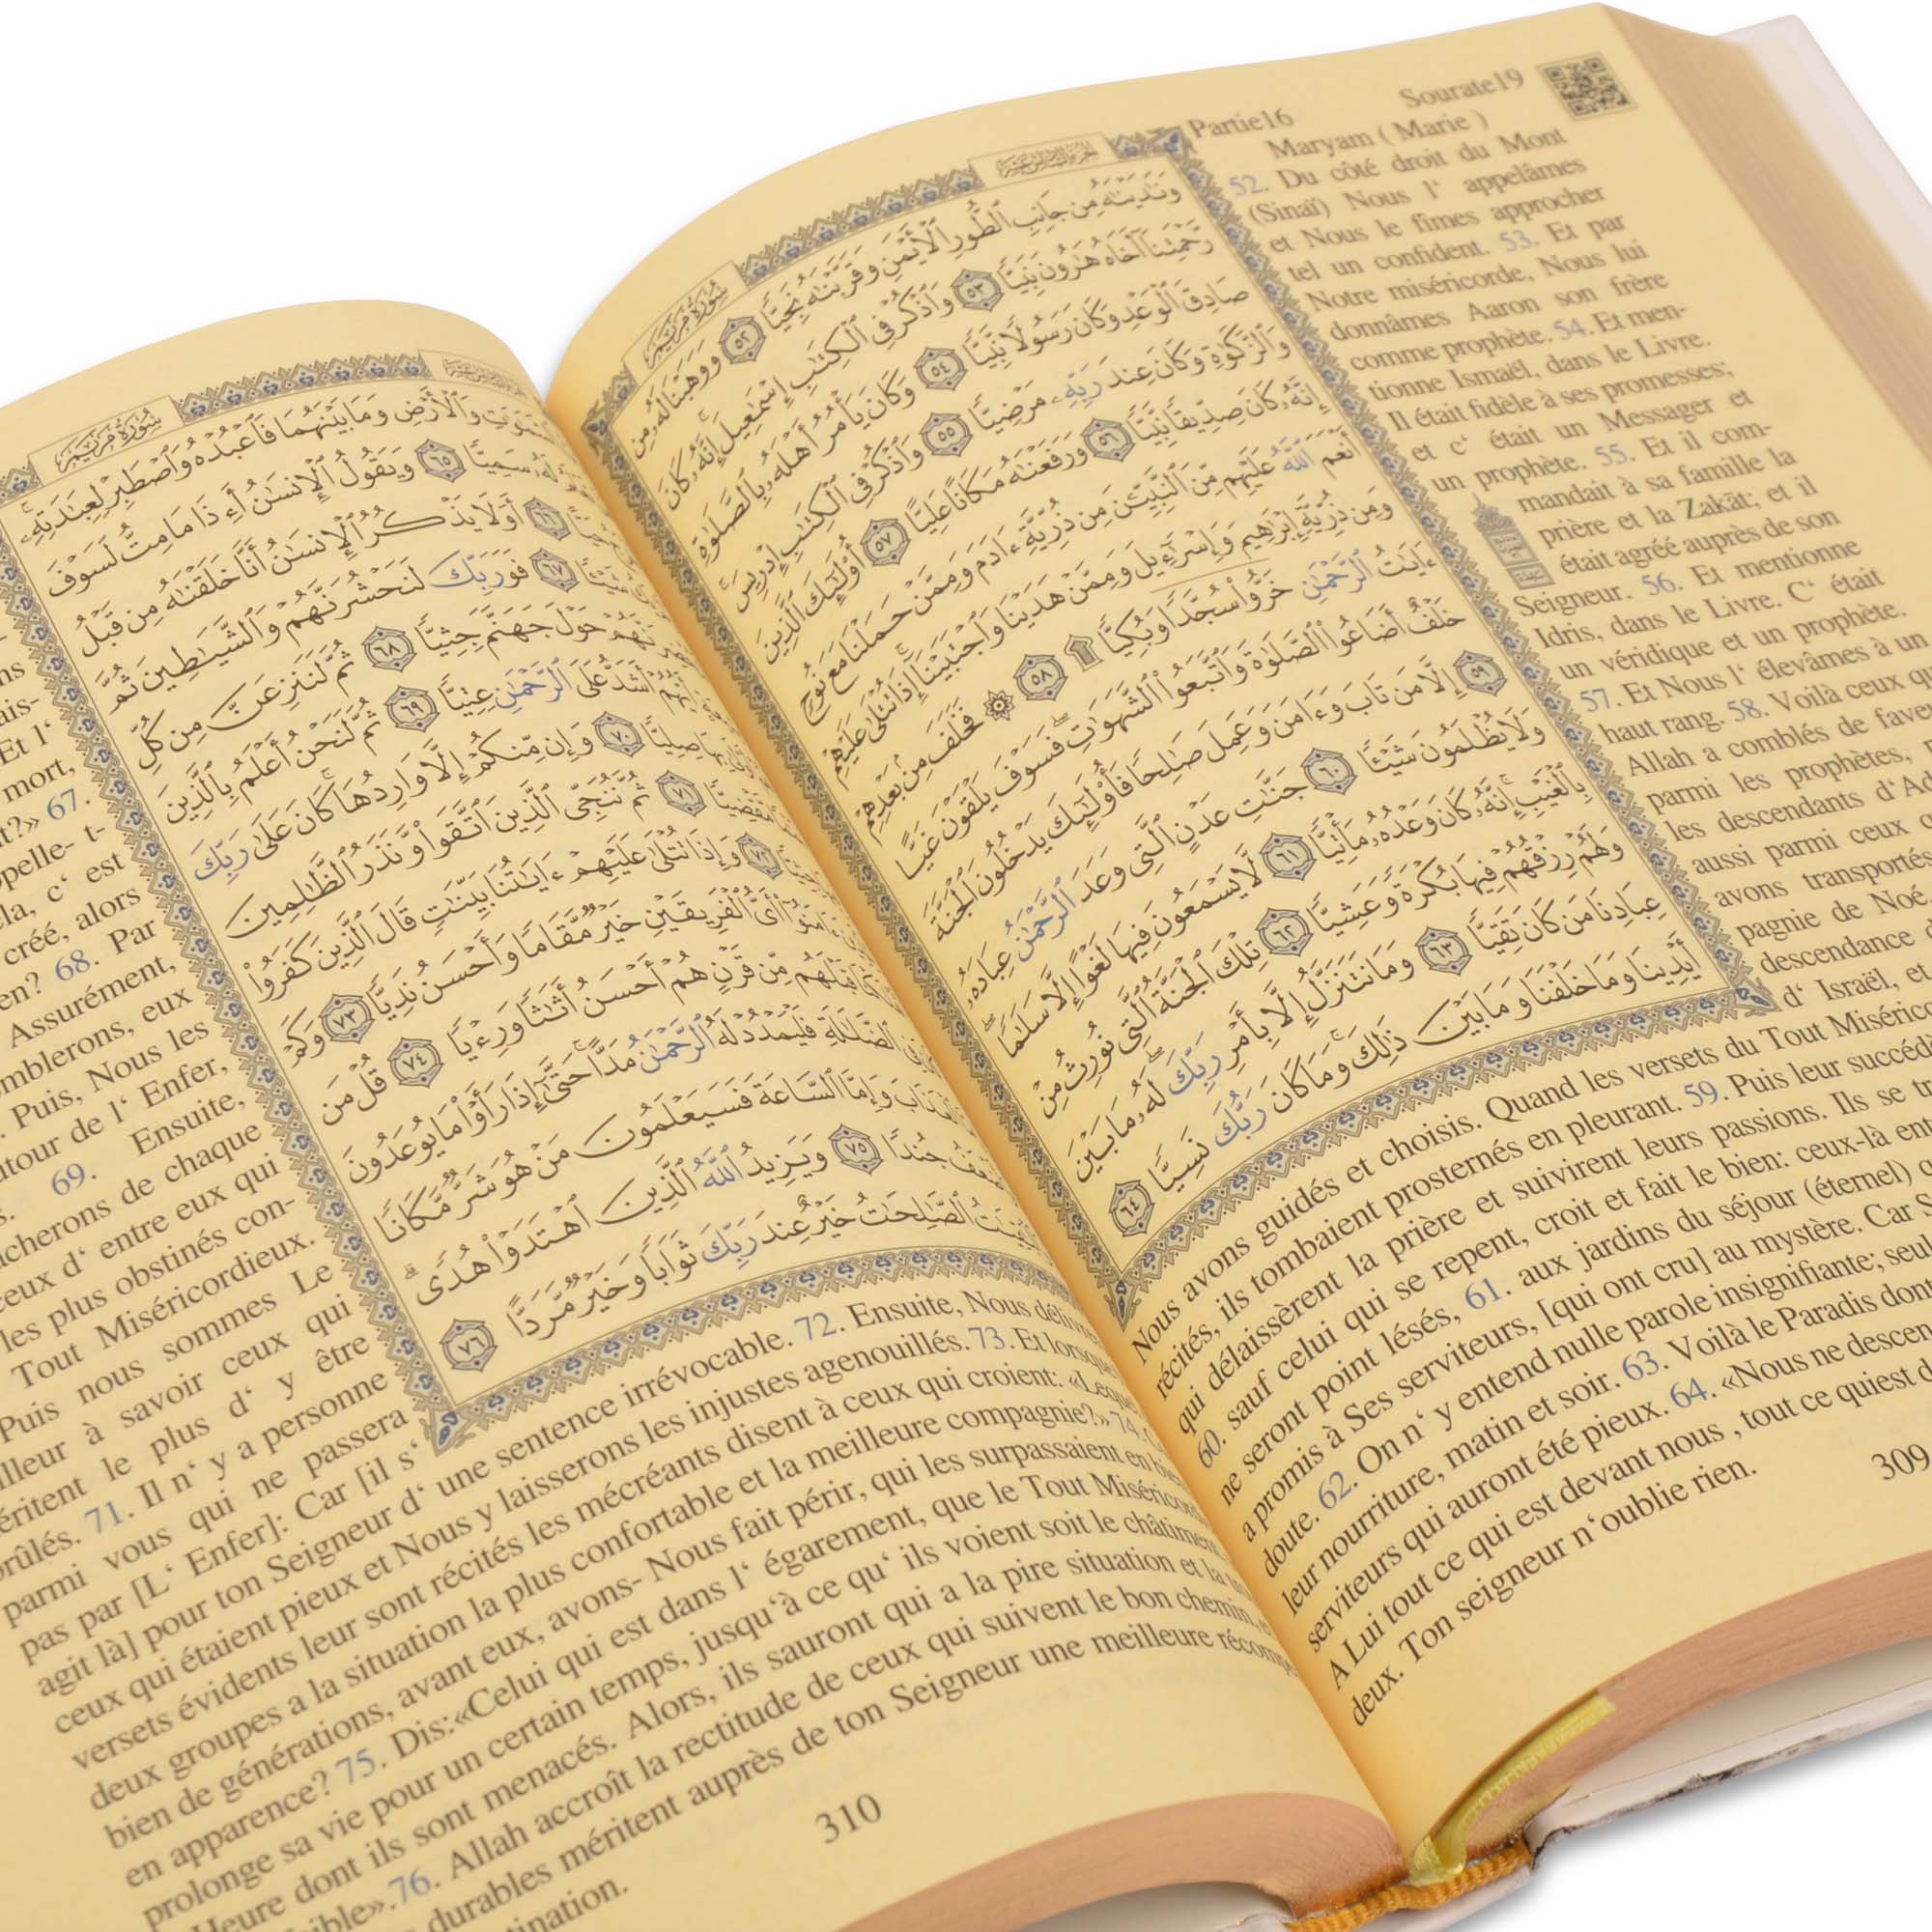 Partie16
Sourate19
Maryam ( Marie )
52. Du côté droit du Mont
(Sinaï) Nous l‘ appelâmes
et Nous le fîmes approcher
tel un confident. 53. Et par
Notre miséricorde, Nous lui
donnâmes Aaron son frère
comme prophète. 54. Et men-
tionne Ismaël, dans le Livre.
Il était fidèle à ses promesses;
et c‘ était un Messager et
un prophète. 55. Et il com-
mandait à sa famille la
prière et la Zakât; et il
était agréé auprès de son
Seigneur. 56. Et mentionne
Idris, dans le Livre. C‘ était
un véridique et un prophète.
57. Et Nous l‘ élevâmes à un
haut rang. 58. Voilà ceux
Allah a comblés de
parmi les prophètes,
les descendants
aussi parmi ceux
avons transportés
pagnie de Noé,
descendance
d‘ Israël, et
سُورَةُ مَرْيَمَ
وَنَٰدَيْنَٰهُ مِن جَانِبِ ٱلطُّورِ ٱلْأَيْمَنِ وَقَرَّبْنَٰهُ نَجِيًّا ٥٢ وَوَهَبْنَا لَهُۥ مِن
رَّحْمَتِنَآ أَخَاهُ هَٰرُونَ نَبِيًّا ٥٣ وَٱذْكُرْ فِى ٱلْكِتَٰبِ إِسْمَٰعِيلَ ۚ إِنَّهُۥ كَانَ
صَادِقَ ٱلْوَعْدِ وَكَانَ رَسُولًا نَّبِيًّا ٥٤ وَكَانَ يَأْمُرُ أَهْلَهُۥ بِٱلصَّلَوٰةِ
وَٱلزَّكَوٰةِ وَكَانَ عِندَ رَبِّهِۦ مَرْضِيًّا ٥٥ وَٱذْكُرْ فِى ٱلْكِتَٰبِ إِدْرِيسَ ۚ
إِنَّهُۥ كَانَ صِدِّيقًا نَّبِيًّا ٥٦ وَرَفَعْنَٰهُ مَكَانًا عَلِيًّا ٥٧ أُو۟لَٰٓئِكَ ٱلَّذِينَ
أَنْعَمَ ٱللَّهُ عَلَيْهِم مِّنَ ٱلنَّبِيِّـۧنَ مِن ذُرِّيَّةِ ءَادَمَ وَمِمَّنْ حَمَلْنَا مَعَ نُوحٍ
وَمِن ذُرِّيَّةِ إِبْرَٰهِيمَ وَإِسْرَٰٓءِيلَ وَمِمَّنْ هَدَيْنَا وَٱجْتَبَيْنَآ ۚ إِذَا تُتْلَىٰ عَلَيْهِمْ
ءَايَٰتُ ٱلرَّحْمَٰنِ خَرُّوا۟ سُجَّدًا وَبُكِيًّا ۩ ٥٨ ۞ فَخَلَفَ مِنۢ بَعْدِهِمْ
خَلْفٌ أَضَاعُوا۟ ٱلصَّلَوٰةَ وَٱتَّبَعُوا۟ ٱلشَّهَوَٰتِ ۖ فَسَوْفَ يَلْقَوْنَ غَيًّا
٥٩ إِلَّا مَن تَابَ وَءَامَنَ وَعَمِلَ صَٰلِحًا فَأُو۟لَٰٓئِكَ يَدْخُلُونَ ٱلْجَنَّةَ
وَلَا يُظْلَمُونَ شَيْـًٔا ٦٠ جَنَّٰتِ عَدْنٍ ٱلَّتِى وَعَدَ ٱلرَّحْمَٰنُ عِبَادَهُۥ
بِٱلْغَيْبِ ۚ إِنَّهُۥ كَانَ وَعْدُهُۥ مَأْتِيًّا ٦١ لَّا يَسْمَعُونَ فِيهَا لَغْوًا إِلَّا سَلَٰمًا ۖ
وَلَهُمْ رِزْقُهُمْ فِيهَا بُكْرَةً وَعَشِيًّا ٦٢ تِلْكَ ٱلْجَنَّةُ ٱلَّتِى نُورِثُ مِنْ
عِبَادِنَا مَن كَانَ تَقِيًّا ٦٣ وَمَا نَتَنَزَّلُ إِلَّا بِأَمْرِ رَبِّكَ ۖ لَهُۥ مَا بَيْنَ
أَيْدِينَا وَمَا خَلْفَنَا وَمَا بَيْنَ ذَٰلِكَ ۚ وَمَا كَانَ رَبُّكَ نَسِيًّا ٦٤
Nous avons guidés et choisis. Quand les versets du Tout
récités, ils tombaient prosternés en pleurant. 59. Puis leur
qui délaissèrent la prière et suivirent leurs passions. Ils se
60. sauf celui qui se repent, croit et fait le bien: ceux-là
ne seront point lésés, 61. aux jardins du séjour (éternel)
a promis à Ses serviteurs, [qui ont cru] au mystère. Car
doute. 62. On n‘ y entend nulle parole insignifiante;
leur nourriture, matin et soir. 63. Voilà le Paradis
serviteurs qui auront été pieux. 64. «Nous ne
A Lui tout ce qui est devant nous , tout ce quiest
deux. Ton seigneur n‘oublie rien.
309
سُورَةُ مَرْيَمَ
وَٱلْأَرْضِ وَمَا بَيْنَهُمَا فَٱعْبُدْهُ وَٱصْطَبِرْ لِعِبَٰدَتِهِۦ ۚ
سَمِيًّا ٦٥ وَيَقُولُ ٱلْإِنسَٰنُ أَءِذَا مَا مِتُّ لَسَوْفَ
٦٦ أَوَلَا يَذْكُرُ ٱلْإِنسَٰنُ أَنَّا خَلَقْنَٰهُ مِن قَبْلُ
٦٧ فَوَرَبِّكَ لَنَحْشُرَنَّهُمْ وَٱلشَّيَٰطِينَ ثُمَّ
حَوْلَ جَهَنَّمَ جِثِيًّا ٦٨ ثُمَّ لَنَنزِعَنَّ مِن كُلِّ
أَشَدُّ عَلَى ٱلرَّحْمَٰنِ عِتِيًّا ٦٩ ثُمَّ لَنَحْنُ أَعْلَمُ بِٱلَّذِينَ
صِلِيًّا ٧٠ وَإِن مِّنكُمْ إِلَّا وَارِدُهَا ۚ كَانَ عَلَىٰ رَبِّكَ
٧١ ثُمَّ نُنَجِّى ٱلَّذِينَ ٱتَّقَوا۟ وَّنَذَرُ ٱلظَّٰلِمِينَ
٧٢ وَإِذَا تُتْلَىٰ عَلَيْهِمْ ءَايَٰتُنَا بَيِّنَٰتٍ قَالَ ٱلَّذِينَ كَفَرُوا۟
أَىُّ ٱلْفَرِيقَيْنِ خَيْرٌ مَّقَامًا وَأَحْسَنُ نَدِيًّا ٧٣ وَكَمْ
قَبْلَهُم مِّن قَرْنٍ هُمْ أَحْسَنُ أَثَٰثًا وَرِءْيًا ٧٤ قُلْ مَن
ٱلضَّلَٰلَةِ فَلْيَمْدُدْ لَهُ ٱلرَّحْمَٰنُ مَدًّا ۚ حَتَّىٰٓ إِذَا رَأَوْا۟ مَا يُوعَدُونَ
وَإِمَّا ٱلسَّاعَةَ فَسَيَعْلَمُونَ مَنْ هُوَ شَرٌّ مَّكَانًا
جُندًا ٧٥ وَيَزِيدُ ٱللَّهُ ٱلَّذِينَ ٱهْتَدَوْا۟ هُدًى ۗ
ٱلصَّٰلِحَٰتُ خَيْرٌ عِندَ رَبِّكَ ثَوَابًا وَخَيْرٌ مَّرَدًّا ٧٦
Et l‘
mort,
67.
c‘ est
créé, alors
68. Par
Assurément,
eux
Puis, Nous les
de l‘ Enfer,
69. Ensuite,
de chaque
ceux d‘ entre eux qui
les plus obstinés con-
Tout Miséricordieux.
Puis nous sommes Le
à savoir ceux qui
le plus d‘ y être
71. Il n‘ y a personne
parmi vous qui ne passera
pas par [L‘ Enfer]: Car [il s‘
agit là] pour ton Seigneur d‘ une sentence irrévocable. 72. Ensuite, Nous
ceux qui étaient pieux et Nous y laisserons les injustes agenouillés. 73. Et lorsque
versets évidents leur sont récités les mécréants disent à ceux qui croient:
deux groupes a la situation la plus confortable et la meilleure compagnie?». 74.
bien de générations, avant eux, avons- Nous fait périr, qui les surpassaient en
en apparence? 75. Dis:«Celui qui est dans l‘ égarement, que le Tout
prolonge sa vie pour un certain temps, jusqu‘à ce qu‘ ils voient soit le châtiment,
Heure dont ils sont menacés. Alors, ils sauront qui a la pire situation et la
76. Allah accroît la rectitude de ceux qui suivent le bon chemin,
durables méritent auprès de ton Seigneur une meilleure
310